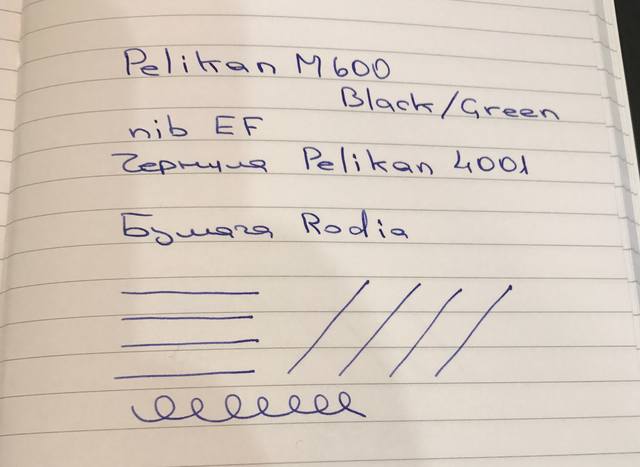 Pelikan M600
Black/Green
nib EF
Чернила Pelikan 4001
Бумага Rodia